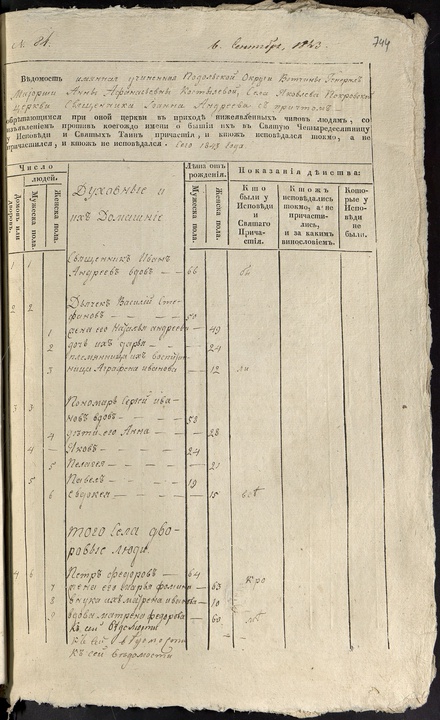 № 21.
6. Сентября, 1843.
744
Ведомость именная учиненная Подольской Округи Вотчины Генералъ
Маіорши Анны Афанасьевны Села Яковлева Покровской
церкви Священника Іоанна Андреева съ причтомъ
обрѣтающимся при оной церкви въ приходѣ нижеявленныхъ чиновъ людямъ, со
изъявленіемъ противъ коегождо имени о бытіи ихъ въ Святую Четыредесятницу
у Исповѣди и Святыхъ Таинъ причастія, и ктожъ исповѣдался токмо, а не
причастился, и ктожъ не исповѣдался. Сего 1843 года
Число
людей.
Домовъ или дворовъ.
Мужеска пола.
Женска пола.
Духовные и
ихъ Домашніе
Лѣта отъ рожденія.
Мужеска пола.
Женска пола.
Показанія дѣйства:
Кто были у Исповѣди и Святаго Причастія.
Ктожъ исповѣдались токмо, а не причастились, и за какимъ винословіемъ.
Которые у Исповѣди не были.
1 Священникъ Иванъ
Андреевъ вдовъ 66 бы
2 2 Дьячекъ Василій
50
1 жена его Наталья андреева 49
2 дочь ихъ дарья 24
племянница ихъ
3 Аграфена иванова 12 ли
3 3 Пономарь Сергей ива
новъ вдовъ 58
4 дѣти его Анна 28
4 Яковъ 24
5 Пелагея 21
5 Павелъ 19
6 Евдокея 15 всѣ
того села дво-
ровые люди.
4 6 Петръ федоровъ 64 кро
7 жена его дарья 63
8 внука ихъ матрена иванова 10
9 вдова матрена федорова 60 мѣ
къ сей ведомости
къ сей ведомости
къ сей ведомости